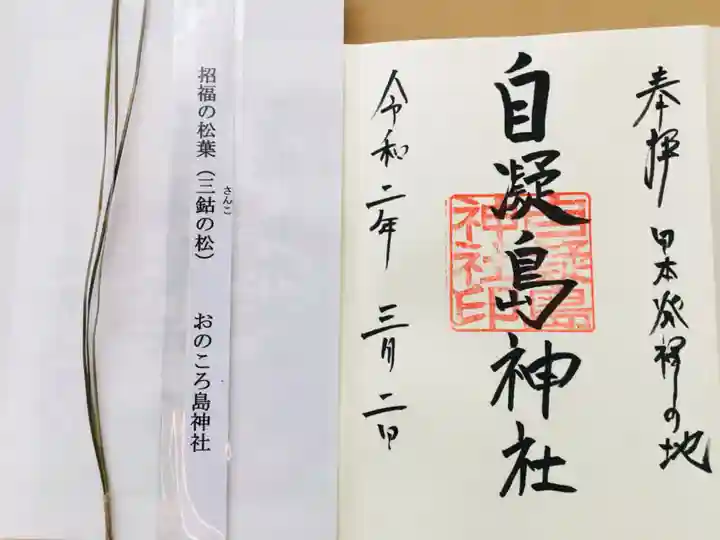 奉拝 日本発祥の地
自凝島神社
自凝島
神社印
令和二年 三月二日
招福の松葉(三鈷の松) おのころ島神社
さんこ